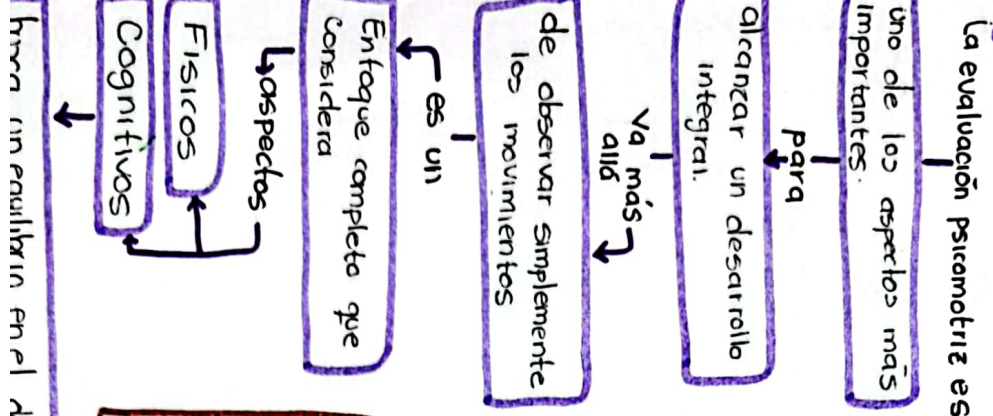 La evaluación psicomotriz es
uno de los aspectos más
importantes.
para
alcanzar un desarrollo
integral.
va más
allá
de observar simplemente
los movimientos
es un
Enfoque completo que
considera
aspectos
Fisicos
Cognitivos
equilibrio en el d